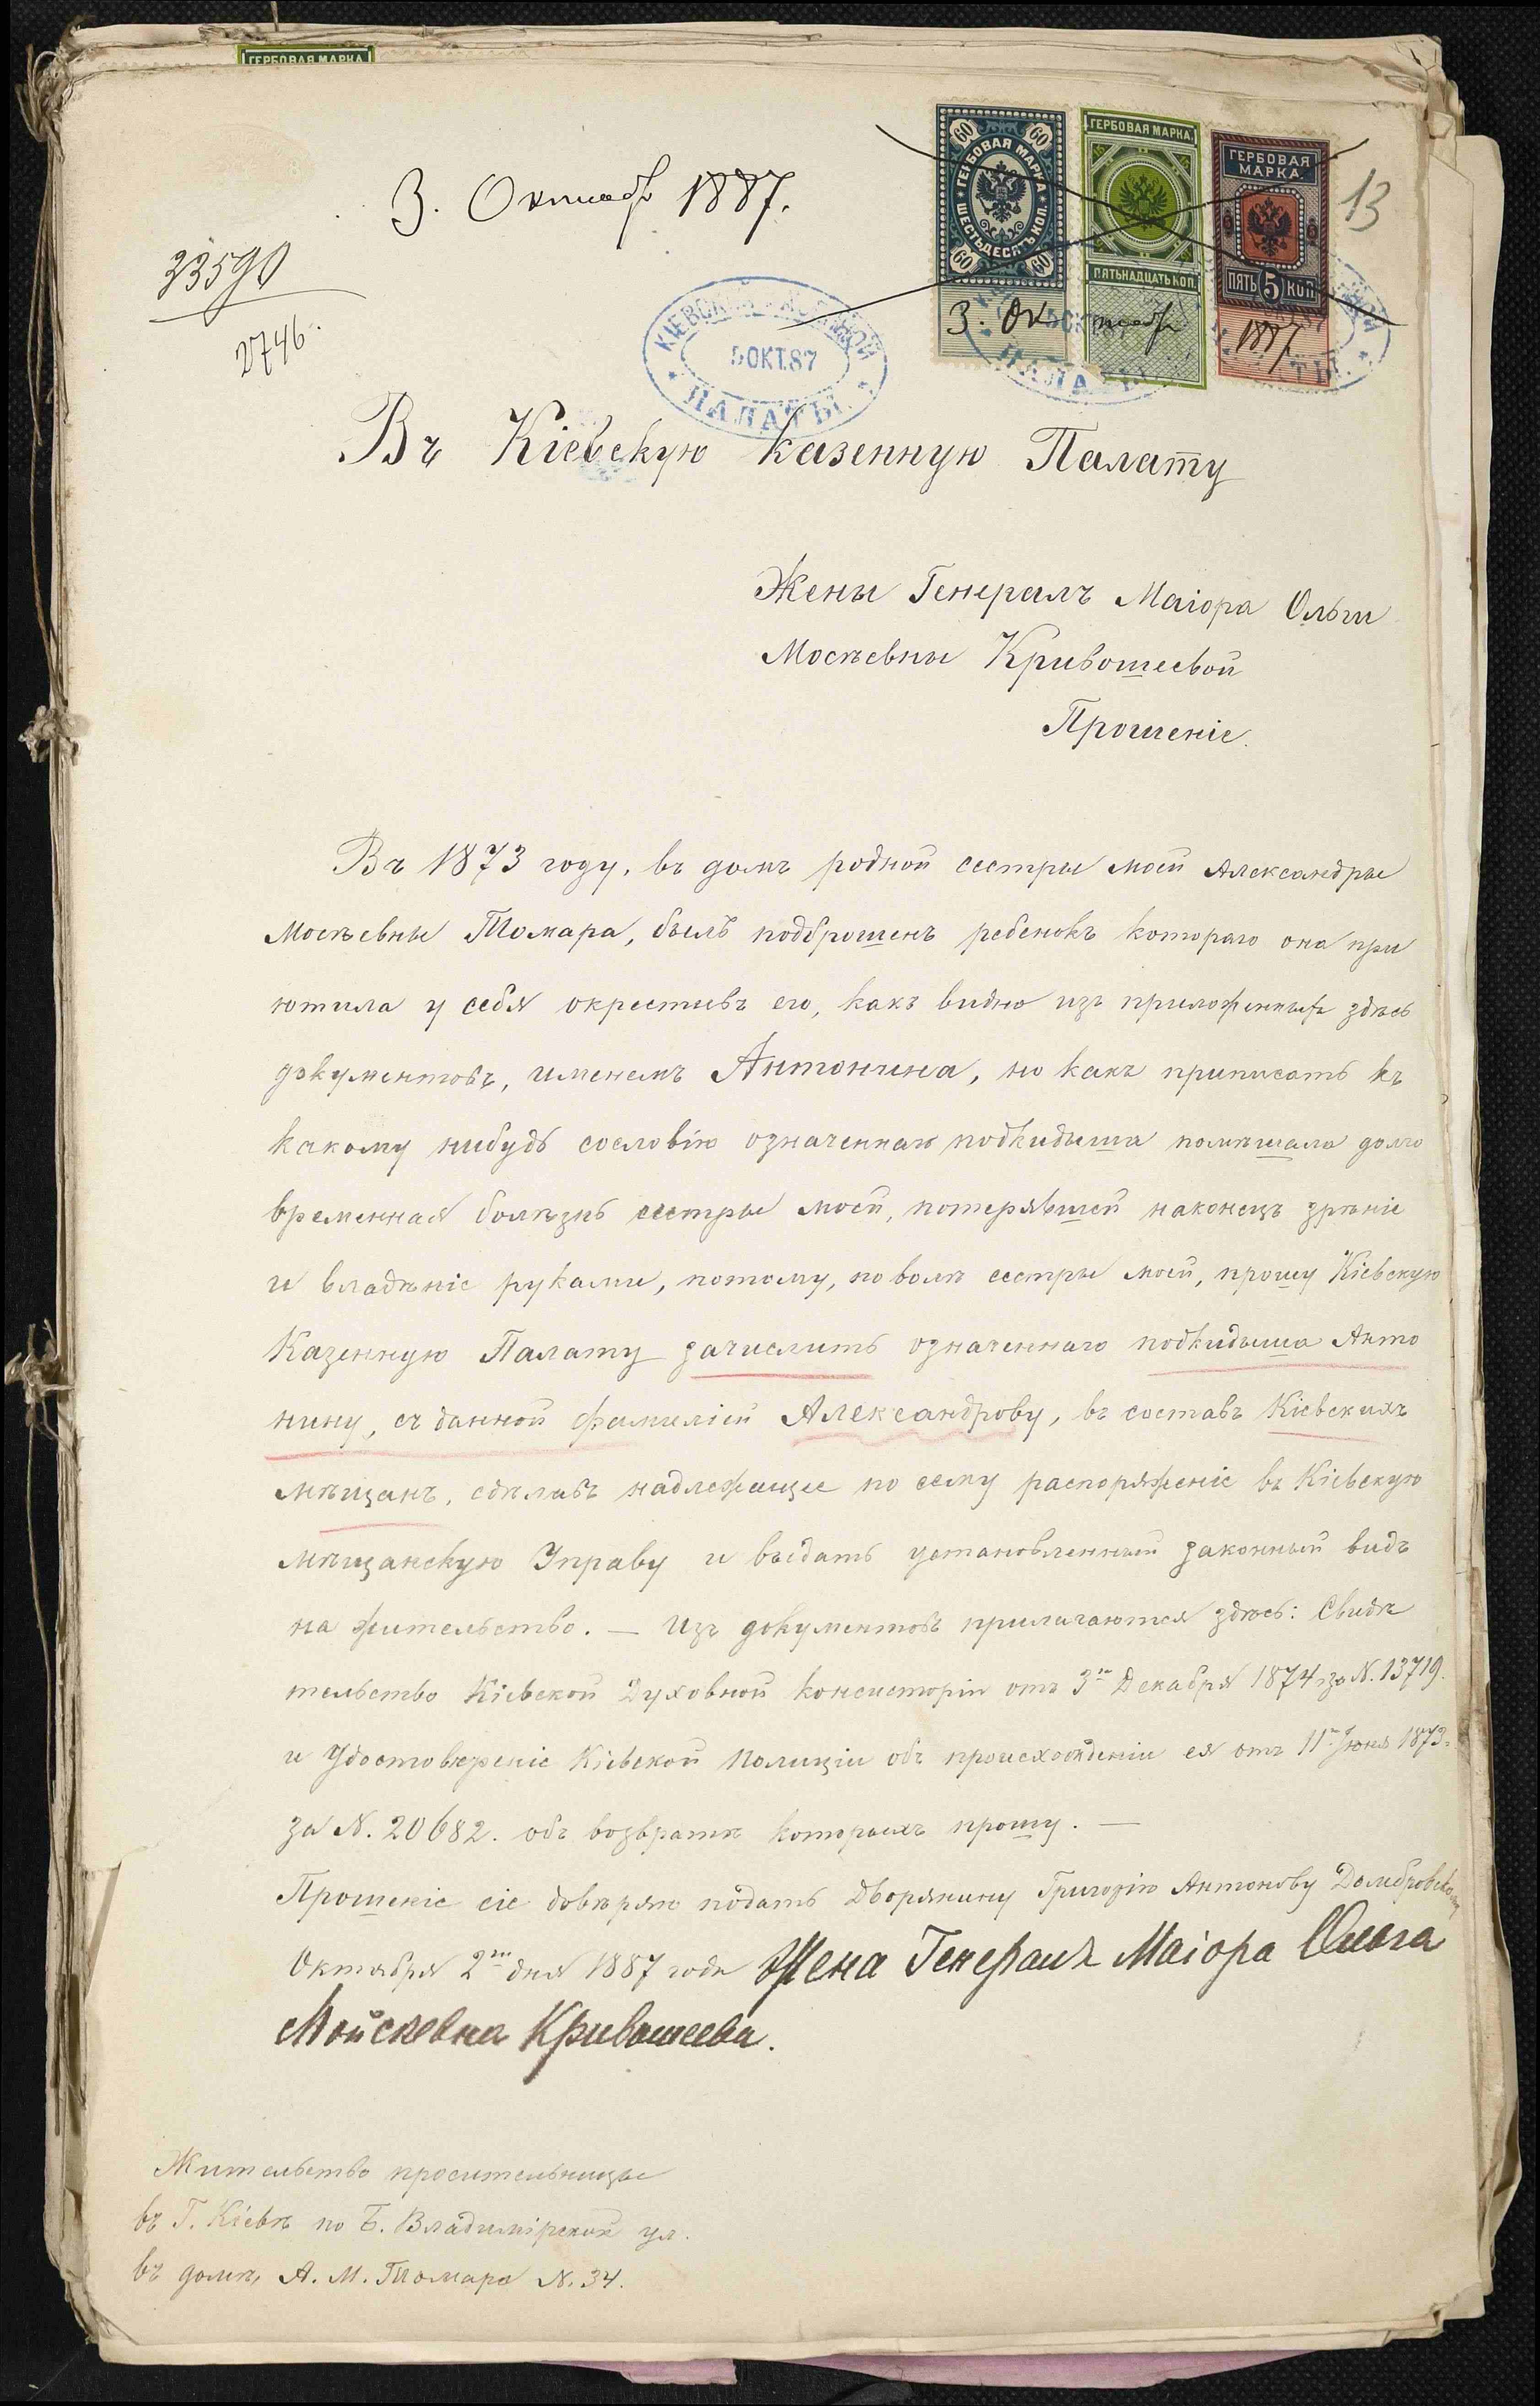 ГЕРБОВАЯ МАРКА
3. Октября 1887.
13
33590
2746.
60 60
ГЕРБОВАЯ МАРКА
ШЕСТЬДЕСЯТЪ КОП.
60 60
ГЕРБОВАЯ МАРКА
15 15
ПЯТЬНАДЦАТЬ КОП.
ГЕРБОВАЯ
МАРКА
ПЯТЬ 5 КОП
3. Ок тября 1887
КІЕВСКОЙ КАЗЕННОЙ
5 ОКТ. 87
ПАЛАТЫ
Въ Кіевскую казенную Палату
Жены Генералъ Маіора Ольги
Мосѣевны Кривошеевой
Прошеніе.
Въ 1873 году, въ домъ родной сестры моей Александры
Мосѣевны Томара, былъ подброшенъ ребенокъ котораго она при
ютила у себя окрестивъ его, какъ видно изъ приложенныхъ здѣсь
документовъ, именемъ Антонина, но какъ приписать къ
какому нибудь сословію означеннаго подкидыша помѣшала долго
временная болѣзнь сестры моей, потерявшей наконецъ зрѣніе
и владѣніе руками, потому, по волѣ сестры моей, прошу Кіевскую
Казенную Палату зачислить означеннаго подкидыша Анто
нину, съ данной фамиліей Александрову, въ составъ Кіевскихъ
мѣщанъ, сдѣлавъ надлежащее по сему распоряженіе въ Кіевскую
мѣщанскую Управу и выдать установленный законный видъ
на жительство. — Изъ документовъ прилагаются здѣсь: Свидѣ
тельство Кіевской Духовной консисторіи отъ 3го Декабря 1874 за N. 13719.
и Удостовѣреніе Кіевской Полиціи объ происхожденіи ея отъ 11го Іюня 1873г.
за N. 20682. объ возвратѣ которыхъ прошу. —
Прошеніе сіе довѣряю подать Дворянину Григорію Антонову Домбровскому
Октября 2го дня 1887 года Жена Генералъ Маіора Ольга
Мойсеевна Кривошеева.
Жительство просительницы
въ Г. Кіевѣ по Б. Владимірской ул.
въ домѣ, А. М. Томара N. 34.